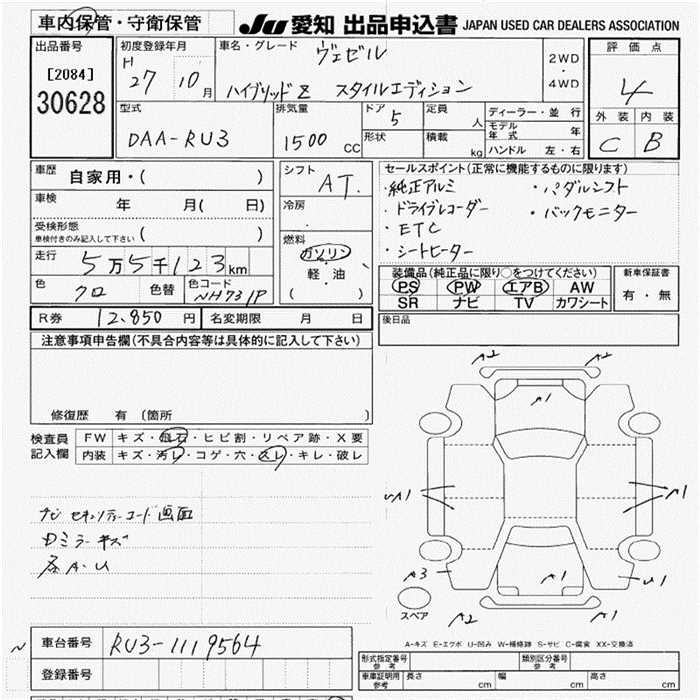 車内保管・守衛保管
JU 愛知 出品申込書 JAPAN USED CAR DEALERS ASSOCIATION
出品番号
[2084]
30628
初度登録年月
H 27 10月
車名・グレード
ヴェゼル
ハイブリッドZ スタイルエディション
2WD
・
4WD
評価点
4
外装 内装
C B
型式
DAA-RU3
排気量
1500 CC
ドア 5
形状
定員 人
積載 kg
ディーラー・並行
モデル年式 年
ハンドル 左・右
車歴
自家用・( )
車検 年 月( 日)
受検形態
車検付きのみ記入して下さい ( )
走行
5万5千123km
色
クロ
色替
色コード
NH731P
シフト
AT.
冷房
燃料
ガソリン
・
軽油
( )
セールスポイント(正常に機能するものに限ります)
・純正アルミ ・パダルシフト
・ドライブレコーダー ・バックモニター
・ETC
・シートヒーター
装備品(純正品に限り○をつけてください)
PS PW エアB AW
SR ナビ TV カワシート
新車保証書
有・無
R券 12,850円
名変期限 月 日
後日品
注意事項申告欄(不具合内容等は具体的に記入して下さい)
修復歴 有(箇所 )
検査員記入欄
FW キズ・飛石・ヒビ割・リペア跡・X要
内装 キズ・汚レ・コゲ・穴・スレ・キレ・破レ
ナビ セキュリティーコード画面
Dミラーキズ
各A・U
A2 A2
A1
UA1 A1
A3 A1 A1 U1
A2 A2
スペア
A-キズ E-エクボ U-凹み W-補修跡 S-サビ C-腐食 XX-交換済
車台番号 RU3-1119564
登録番号
形式指定番号 参考
類別区分番号 参考
車庫証明用 参考 長さ cm 幅 cm 高さ cm